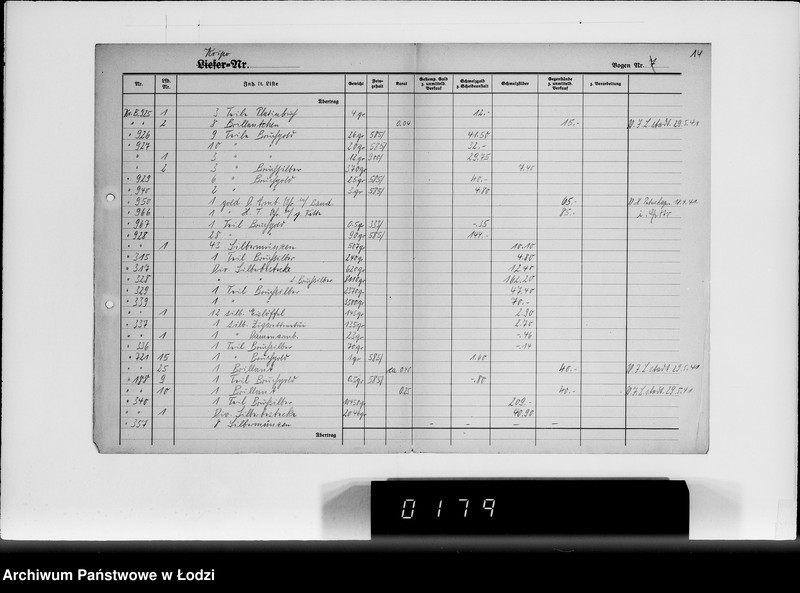 Kripo
Liefer-Nr.
Bogen Nr. 7
14
Nr. Lfd. Nr. Inh. lt. Liste Gewicht Feingehalt Karat Gestemp. Gold z. unmittelb. Verkauf Schmelzgold z. Scheideanstalt Schmelzsilber Gegenstände z. unmittelb. Verkauf z. Verarbeitung
Übertrag
Kr.B. 925 1 3 Teile Platinbruch 4 gr 12.-
" " 2 8 Brillantchen 0.04 15.- 29.5.41
" 926 9 Teile Bruchgold 26gr 585/ 41.50
" 927 10 " " 20gr 585/ 32.-
" 1 3 " " 12gr 900/ 29.75
" 2 3 " Bruchsilber 370gr 7.40
" 929 6 " Bruchgold 25gr 585/ 40.-
" 940 2 " " 3gr 585/ 4.80
" 950 1 gold D. Armb. Uhr m/ Band. 65.-
" 966 1 " H. T. Uhr m/ g. Kette 85.-
" 967 1 Teil Bruchgold 0.5gr 333/ -.35
" 928 28 " " 90gr 585/ 144.-
" " 1 43 Silbermünzen 507gr 10.10
" 315 1 Teil Bruchsilber 240gr 4.80
" 317 Div. Silberbestecke 620gr 12.40
" 328 " " z. Bruchsilber 162.20
" 329 1 Teil Bruchsilber 2370gr 47.40
" 339 1 " " 3500gr 70.-
" " 1 12 silb. Esslöffel 145gr 2.90
" 337 1 silb. Zigarettenetui 135gr 2.70
" " 1 1 " Damenarmb. 23gr -.46
" 336 1 Teil Bruchsilber 70gr -.14
" 721 15 1 " Bruchgold 1gr 585/ 1.60
" " 25 1 Brillant ca 0.40 40.- 29.5.41
" 188 9 1 Teil Bruchgold 0.5gr 585/ -.80
" " 10 1 Brillant 0.25 40.- 29.5.41
" 340 1 Teil Bruchsilber 10450gr 209.-
" " 1 Div. Silberbestecke 2045gr 40.90
" 357 8 Silbermünzen - - - -
Übertrag
0179
Archiwum Państwowe w Łodzi